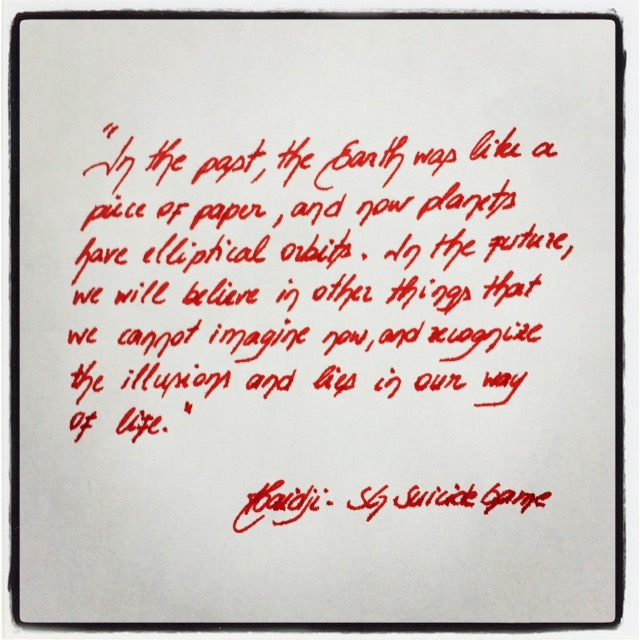 "In the past, the Earth was like a
piece of paper, and now planets
have elliptical orbits. In the future,
we will believe in other things that
we cannot imagine now, and recognize
the illusions and lies in our way
of life."
Haidji - SG Suicide Game